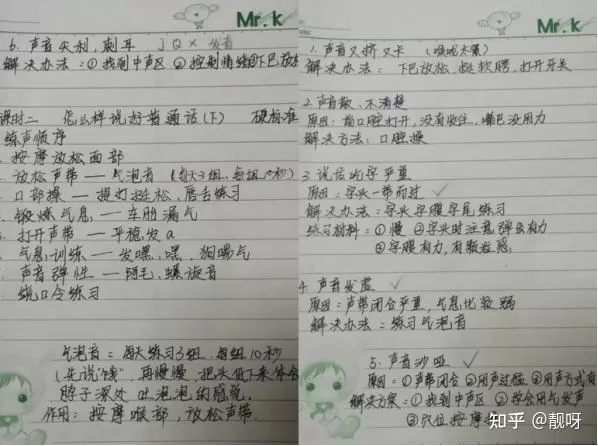 Mr.k
6. 声音尖利,刺耳 J Q X 发音
解决办法:①找到中声区 ②控制情绪③下巴放松
课时二 怎么样说好普通话(下) 硬标准
练声顺序
按摩放松面部
放松声带——气泡音(每天3组,每组10秒)
口部操——提打挺松,唇舌练习
锻炼气息——车胎漏气
打开声带——平稳发a
气息训练——发嘿,嘿,狗喘气
声音弹性——阿毛,螺旋音
绕口令练习
气泡音:每天练习3组,每组10秒
(先说"饿",再慢慢,把头低下来体会
脖子深处吐泡泡的感觉.
作用:按摩喉部,放松声带.
Mr.k
1. 声音又挤又卡
解决办法:下巴放松,挺软腭,打开牙关
2. 声音散、不清楚
原因:前口腔打开,没有收住,嘴巴没用力
解决方法:口腔操
3. 说话吃字严重
原因:字头一带而过
解决办法:字头字腹字尾练习
练习材料:①慢 ②字头时注意弹发有力
③字腹有力,有颗粒感
4. 声音发虚
原因:声带闭合严重,气息比较弱
解决办法:练习气泡音
5. 声音沙哑
原因:①声带闭合 ②用声过猛 ③用声方式有
解决方案:①找到中声区 ②学会用气发声
③穴位按摩
知乎 @靓呀